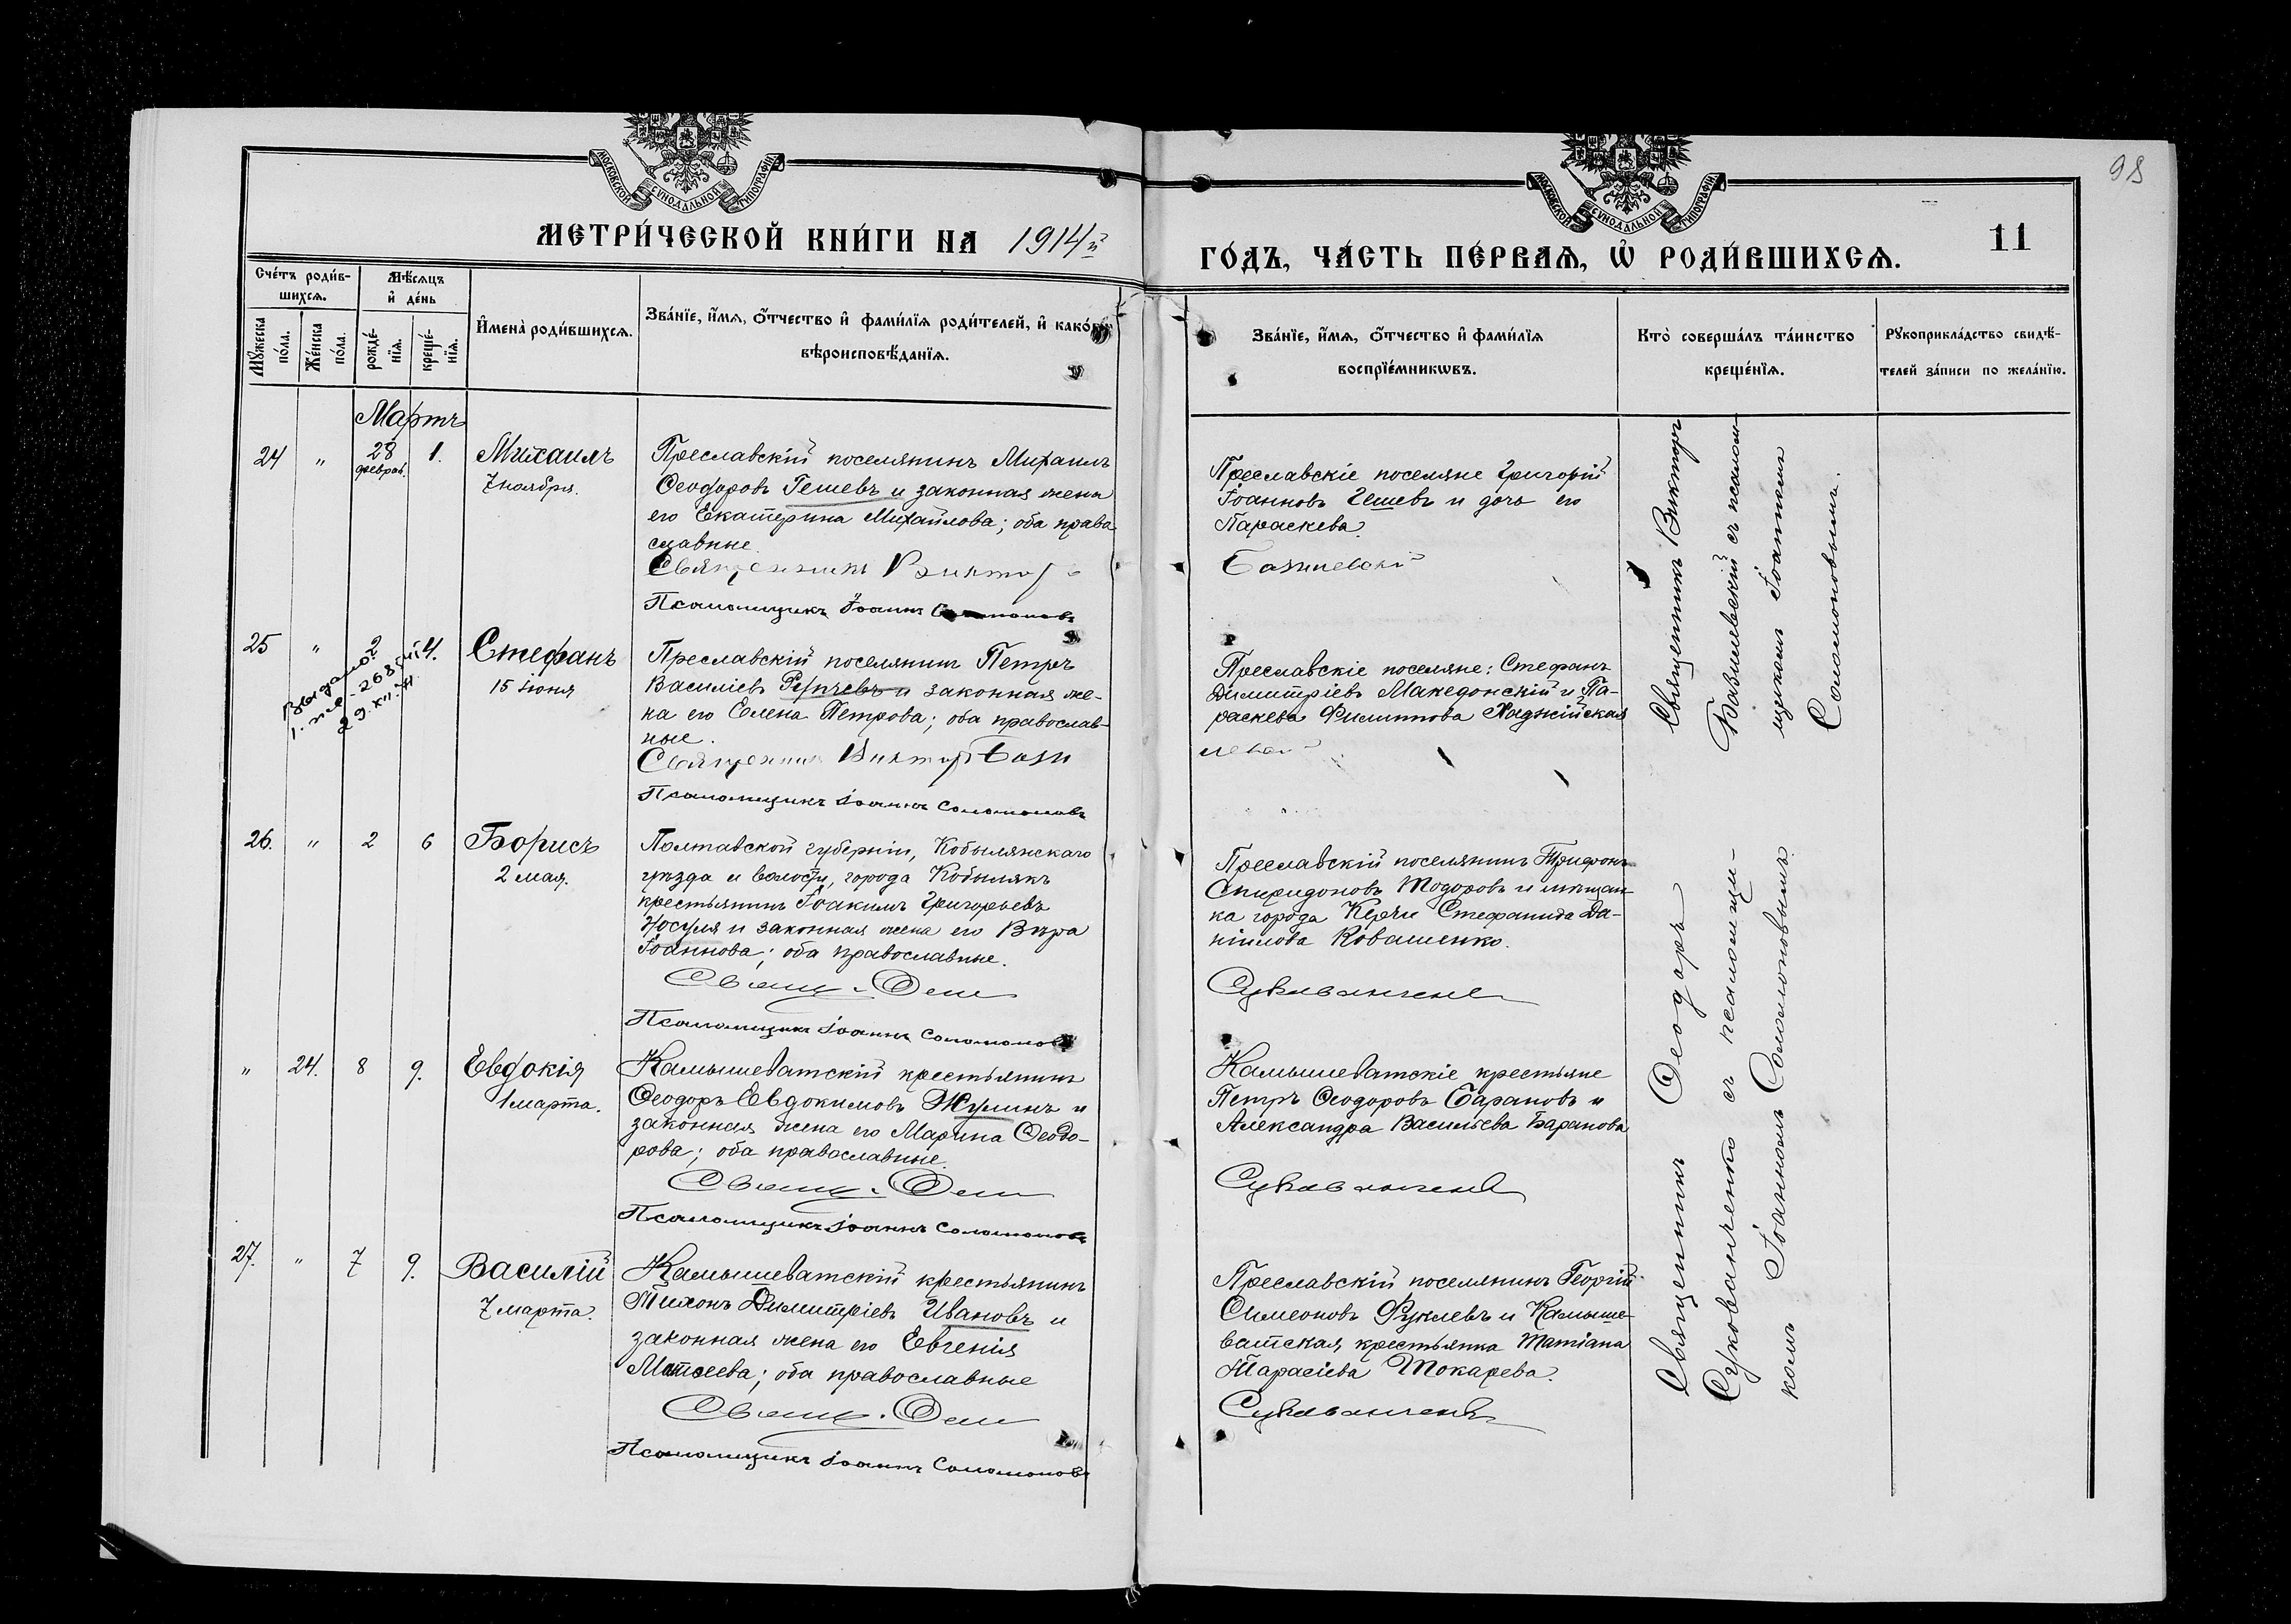 98
МОСКОВСКОЙ СѴНОДАЛЬНОЙ ТИПОГРАФІИ
МОСКОВСКОЙ СѴНОДАЛЬНОЙ ТИПОГРАФІИ
МЕТРИ́ЧЕСКОЙ КНИ́ГИ НА 1914й
ГО́ДЪ, ЧА́СТЬ ПЕ́РВАѦ, Ѡ҆ РОДИ́ВШИХСѦ.
11
Сче́тъ роди́в-
шихсѧ.
Мѣ́сѧцъ
и҆ де́нь
Мꙋ́жеска
по́ла.
Же́нска
по́ла.
рожде́-
нїѧ.
креще́-
нїѧ.
И҆мена̀ роди́вшихсѧ.
Зва́нїе, и҆́мѧ, ѻ҆́тчество и҆ фами́лїѧ роди́телей, и҆ како́гѡ
вѣроисповѣ́данїѧ.
Зва́нїе, и҆́мѧ, ѻ҆́тчество и҆ фами́лїѧ
воспрїе́мникѡвъ.
Кто̀ соверша́лъ та́инство
креще́нїѧ.
Рꙋкоприкла́дство свидѣ́-
телей за́писи по жела́нїю.
Мартъ
24 " 28 феврал. 1. Михаилъ
7 ноября.
Преславскій поселянинъ Михаилъ
Ѳеодоровъ Гешевъ и законная жена
его Екатерина Михайлова; оба право
славные.
Священникъ Виктор
Псаломщикъ Іоаннъ Соломоновъ
Преславскіе поселяне Григорій
Іоанновъ Гешевъ и дочь его
Параскева.
Базилевскій
Священникъ Викторъ
Базилевскій съ псалом-
щикомъ Іоанномъ
Соломоновымъ.
25 " 2 4. Стефанъ
15 іюня
Выдано
29.XII
Преславскій поселянинъ Петръ
Василіевъ и законная же-
на его Елена Петрова; оба православ-
ные.
Священникъ Виктор Бази
Псаломщикъ Іоаннъ Соломоновъ
Преславскіе поселяне: Стефанъ
Димитріевъ Македонскій и Па-
раскева Филиппова Хаджійская
левскій
26. " 2 6 Борисъ
2 мая.
Полтавской губерніи, Кобылянскаго
уѣзда и волости, города Кобылякъ
крестьянинъ Іоакимъ Григорьевъ
Носуля и законная жена его Вѣра
Іоаннова; оба православные.
Свящ. Ѳеи
Псаломщикъ Іоаннъ Соломоновъ
Преславскій поселянинъ Трифонъ
Спиридоновъ Тодоровъ и мѣщан-
ка города Керчи Стефанида Да-
ніилова Ковашенко.
Сукованченко
Священникъ Ѳеодоръ
Сукованченко съ псаломщи-
комъ Іоанномъ Соломоновымъ.
" 24. 8 9. Евдокія
1 марта.
Камышеватскій крестьянинъ
Ѳеодоръ Евдокимовъ Жулинъ и
законная жена его Марина Ѳеодо-
рова; оба православные.
Свящ. Ѳеи
Псаломщикъ Іоаннъ Соломоновъ
Камышеватскіе крестьяне
Петръ Ѳеодоровъ Барановъ и
Александра Васильева Баранова
Сукованченко
27. " 7 9. Василій
7 марта.
Камышеватскій крестьянинъ
Тихонъ Димитріевъ Ивановъ и
законная жена его Евгенія
Матѳеева; оба православные
Свящ. Ѳеи
Псаломщикъ Іоаннъ Соломоновъ
Преславскій поселянинъ Георгій
Симеоновъ Фуклевъ и Камыше-
ватская крестьянка Татіана
Тарасіева Токарева.
Сукованченко